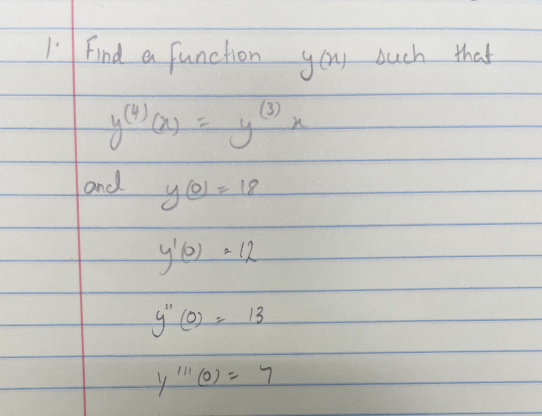 1. Find a function y(x) such that
y⁽⁴⁾(x) = y⁽³⁾ x
and y(0) = 18
y'(0) = 12
y"(0) = 13
y'''(0) = 7